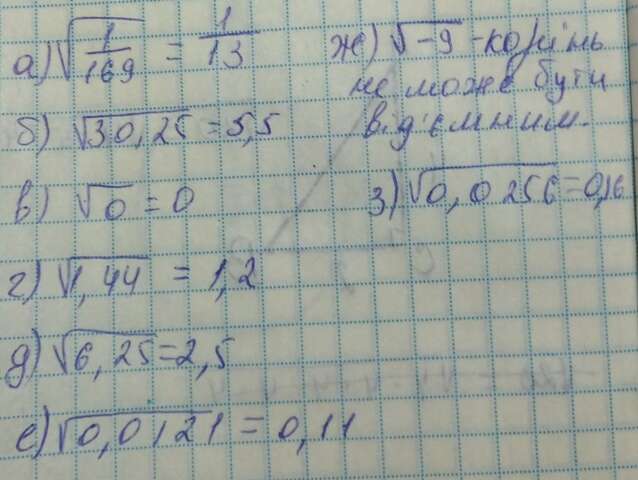 а) √1/169 = 1/13
б) √30,25 = 5,5
в) √0 = 0
г) √1,44 = 1,2
д) √6,25 = 2,5
е) √0,0121 = 0,11
ж) √-9 - корінь
не може бути
від'ємним.
з) √0,0256 = 0,16